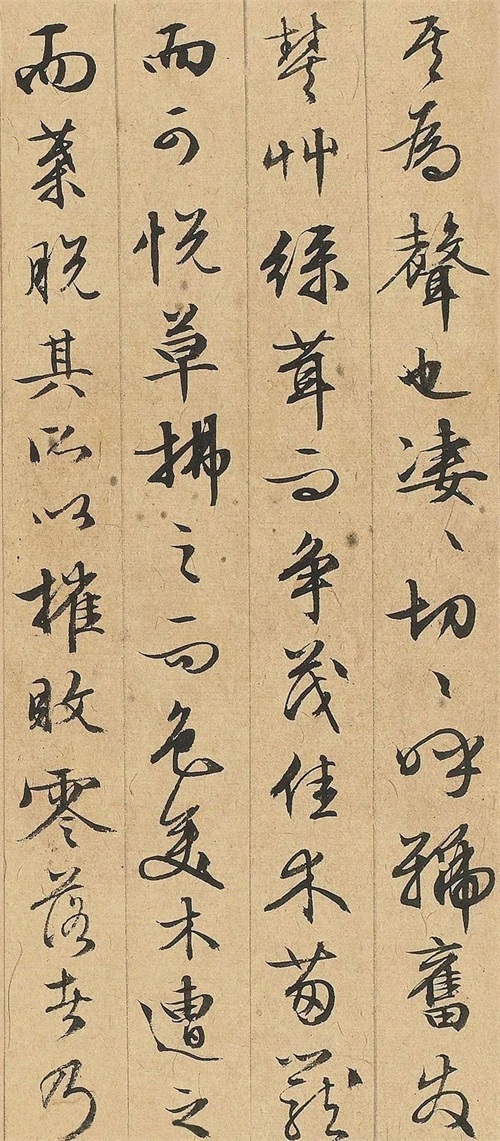 其為聲也凄〻切〻呼號奮發
豐艸綠茸而爭茂佳木葱蘢
而可悅草拂之而色變木遭之
而葉脫其所以摧敗零落者乃